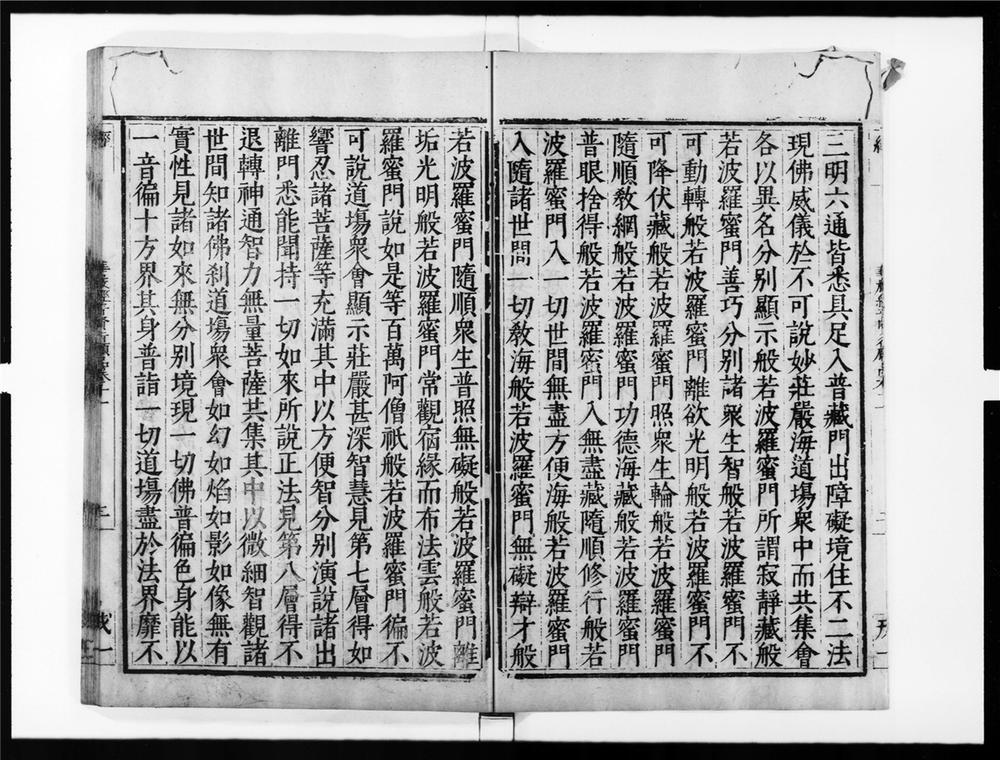 三明六通皆悉具足入普藏門出障礙境住不二法
現佛威儀於不可說妙莊嚴海道塲衆中而共集會
各以異名分别顯示般若波羅蜜門所謂寂靜藏般
若波羅蜜門善巧分别諸衆生智般若波羅蜜門不
可動轉般若波羅蜜門離欲光明般若波羅蜜門不
可降伏藏般若波羅蜜門照衆生輪般若波羅蜜門
隨順敎網般若波羅蜜門功德海藏般若波羅蜜門
普眼捨得般若波羅蜜門入無盡藏隨順修行般若
波羅蜜門入一切世間無盡方便海般若波羅蜜門
入隨諸世間一切敎海般若波羅蜜門無礙辯才般
若波羅蜜門隨順衆生普照無礙般若波羅蜜門離
垢光明般若波羅蜜門常觀宿緣而布法雲般若波
羅蜜門說如是等百萬阿僧祇般若波羅蜜門徧不
可說道塲衆會顯示莊嚴甚深智慧見第七層得如
響忍諸菩薩等充滿其中以方便智分别演說諸出
離門悉能聞持一切如來所說正法見第八層得不
退轉神通智力無量菩薩共集其中以微細智觀諸
世間知諸佛刹道塲衆會如幻如焰如影如像無有
實性見諸如來無分别境現一切佛普徧色身能以
一音徧十方界其身普詣一切道塲盡於法界靡不